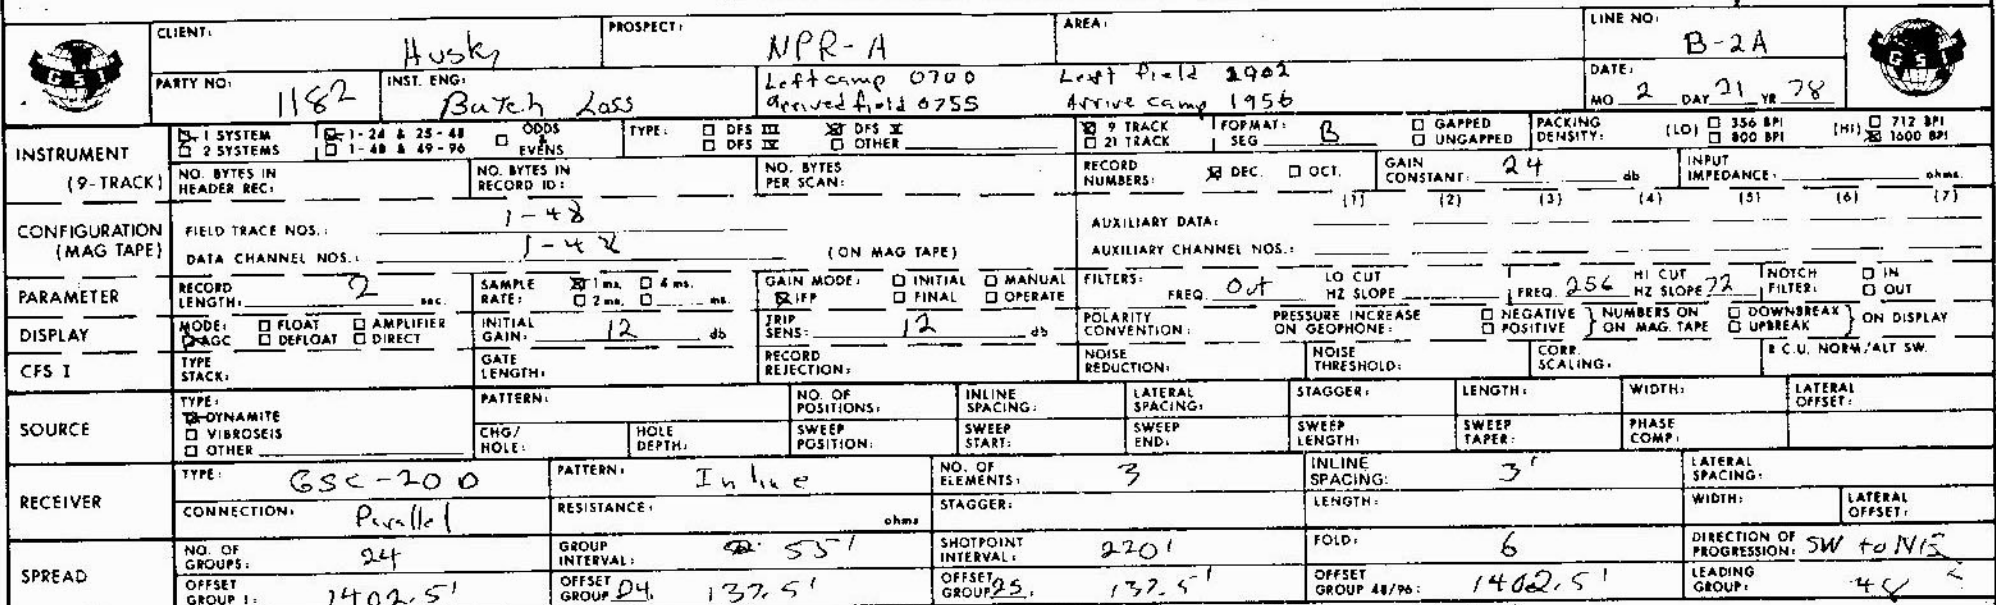 CLIENT: Husky PROSPECT: NPR-A AREA: LINE NO: B-2A
GSI PARTY NO: 1182 INST. ENG: Butch Loss Left camp 0700 Left field 1902 DATE: GSI
arrived field 0755 Arrive camp 1956 MO 2 DAY 21 YR 78
INSTRUMENT (9-TRACK) 1 SYSTEM 1-24 & 25-48 ODDS & EVENS TYPE: DFS III DFS V 9 TRACK FORMAT: B GAPPED PACKING DENSITY: (LO) 356 BPI (HI) 712 BPI
2 SYSTEMS 1-48 & 49-96 DFS IV OTHER 21 TRACK SEG UNGAPPED 800 BPI 1600 BPI
NO. BYTES IN HEADER REC: NO. BYTES IN RECORD ID: NO. BYTES PER SCAN: RECORD NUMBERS: DEC. OCT. GAIN CONSTANT: 24 db INPUT IMPEDANCE: ohms.
CONFIGURATION (MAG TAPE) FIELD TRACE NOS.: 1-48 AUXILIARY DATA: (1) (2) (3) (4) (5) (6) (7)
DATA CHANNEL NOS.: 1-48 (ON MAG TAPE) AUXILIARY CHANNEL NOS.:
PARAMETER RECORD LENGTH: 2 sec. SAMPLE RATE: 1 ms. 4 ms. 2 ms. ms. GAIN MODE: INITIAL MANUAL IFP FINAL OPERATE FILTERS: FREQ. Out LO CUT HZ SLOPE FREQ. 256 HI CUT HZ SLOPE 72 NOTCH FILTER: IN OUT
DISPLAY MODE: FLOAT AMPLIFIER AGC DEFLOAT DIRECT INITIAL GAIN: 12 db TRIP SENS: 12 db POLARITY CONVENTION: PRESSURE INCREASE ON GEOPHONE: NEGATIVE POSITIVE } NUMBERS ON ON MAG. TAPE DOWNBREAK UPBREAK } ON DISPLAY
CFS I TYPE STACK: GATE LENGTH: RECORD REJECTION: NOISE REDUCTION: NOISE THRESHOLD: CORR. SCALING: R.C.U. NORM/ALT SW.
SOURCE TYPE: DYNAMITE VIBROSEIS OTHER PATTERN: NO. OF POSITIONS: INLINE SPACING: LATERAL SPACING: STAGGER: LENGTH: WIDTH: LATERAL OFFSET:
CHG/HOLE: HOLE DEPTH: SWEEP POSITION: SWEEP START: SWEEP END: SWEEP LENGTH: SWEEP TAPER: PHASE COMP:
RECEIVER TYPE: GSC-20D PATTERN: Inline NO. OF ELEMENTS: 3 INLINE SPACING: 3' LATERAL SPACING:
CONNECTION: Parallel RESISTANCE: ohms STAGGER: LENGTH: WIDTH: LATERAL OFFSET:
SPREAD NO. OF GROUPS: 24 GROUP INTERVAL: 55' SHOTPOINT INTERVAL: 220' FOLD: 6 DIRECTION OF PROGRESSION: SW to NE
OFFSET GROUP 1: 1402.5' OFFSET GROUP 24: 137.5' OFFSET GROUP 25: 137.5' OFFSET GROUP 48/96: 1402.5' LEADING GROUP: 48